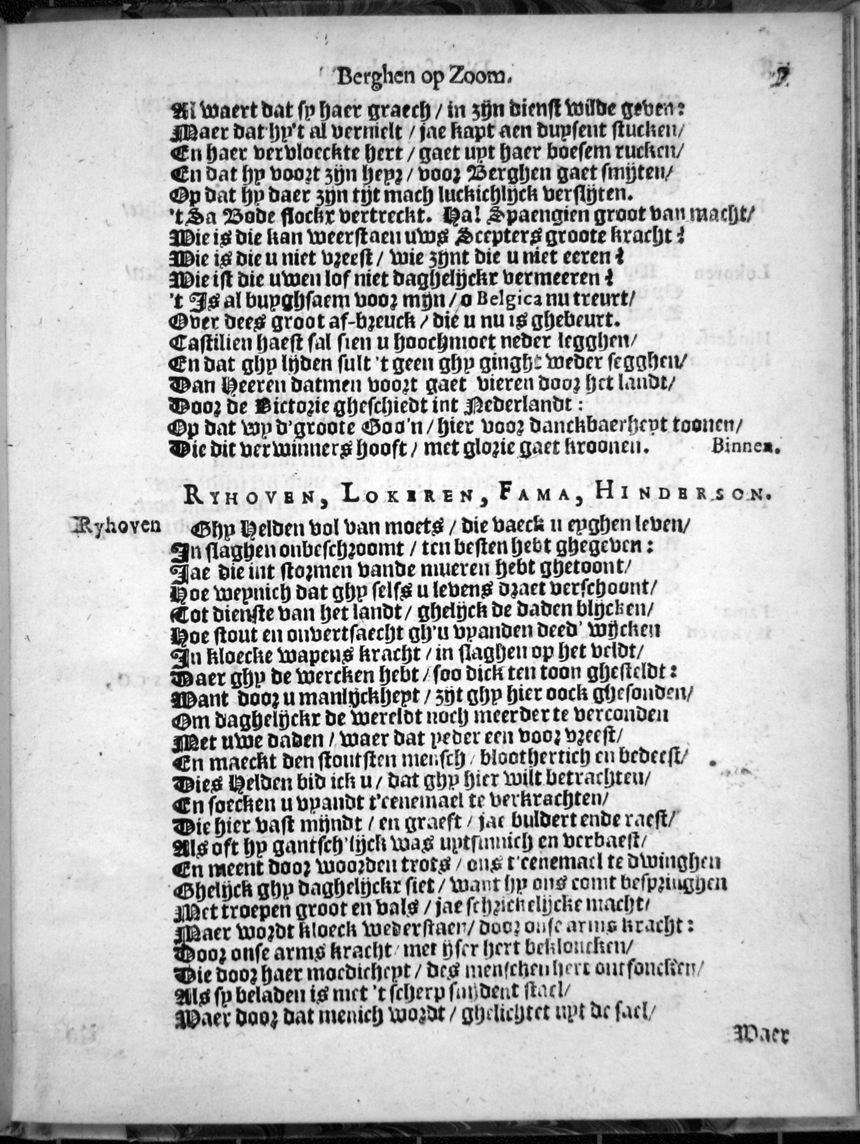 Berghen op Zoom.
Al waert dat sy haer graech / in zijn dienst wilde geven:
Maer dat hy't al vernielt / jae kapt aen duysent stucken/
En haer vervloeckte hert / gaet uyt haer boesem rucken/
En dat hy voort zijn heyr / voor Berghen gaet smijten/
Op dat hy daer zijn tijt mach luckichlijck verslijten.
'tSa Bode flockx vertreckt. Ha! Spaengien groot van macht/
Wie is die kan weerstaen uws Scepters groote kracht?
Wie is die u niet vreest / wie zijnt die u niet eeren?
Wie ist die uwen lof niet daghelijckx vermeeren?
't Is al buyghsaem voor mijn / o Belgica nu treurt/
Over dees groot af-breuck / die u nu is ghebeurt.
Castilien haest sal sien u hoochmoet neder legghen/
En dat ghy lijden sult 't geen ghy ginght weder segghen/
Dan Heeren datmen voort gaet vieren door het landt/
Door de Victorie gheschiedt int Nederlandt:
Op dat wy d'groote Goo'n / hier voor danckbaerheyt toonen/
Die dit verwinners hooft / met glorie gaet kroonen. Binnen.
RYHOVEN, LOKEREN, FAMA, HINDERSON.
Ryhoven Ghy Helden vol van moets / die vaeck u eyghen leven/
In slaghen onbeschroomt / ten besten hebt ghegeven:
Jae die int stormen vande mueren hebt ghetoont/
Hoe weynich dat ghy selfs u levens draet verschoont/
Tot dienste van het landt / ghelijck de daden blijcken/
Hoe stout en onvertsaecht gh'u vyanden deed' wijcken
In kloecke wapens kracht / in slaghen op het veldt/
Daer ghy de wercken hebt / soo dick ten toon ghesteldt:
Want door u manlijckheyt / zijt ghy hier oock ghesonden/
Om daghelijckx de wereldt noch meerder te verconden
Met uwe daden / waer dat yeder een voor vreest/
En maeckt den stoutsten mensch / bloothertich en bedeest/
Dies Helden bid ick u / dat ghy hier wilt betrachten/
En soecken u vyandt t'eenemael te verkrachten/
Die hier vast mijndt / en graeft / jae buldert ende raest/
Als oft hy gantsch'lijck was uytsinnich en verbaest/
En meent door woorden trots / ons t'eenemael te dwinghen
Ghelijck ghy daghelijckx siet / want hy ons comt bespringhen
Met troepen groot en vals / jae schrickelijcke macht/
Maer wordt kloeck wederstaen/ door onse arms kracht:
Door onse arms kracht / met ijser hert beklonken/
Die door haer moedicheyt / des menschen hert ontfoncken/
Als sy beladen is met 't scherp snydent stael/
Waer door dat menich wordt / ghelichtet uyt de sael/
Waer